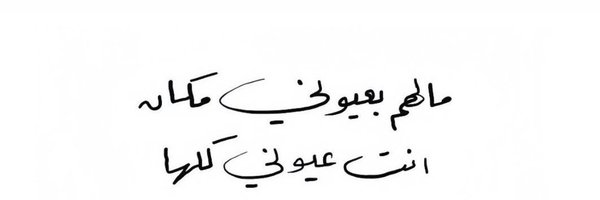 مالهم بعيوني مكان
انت عيوني كلها